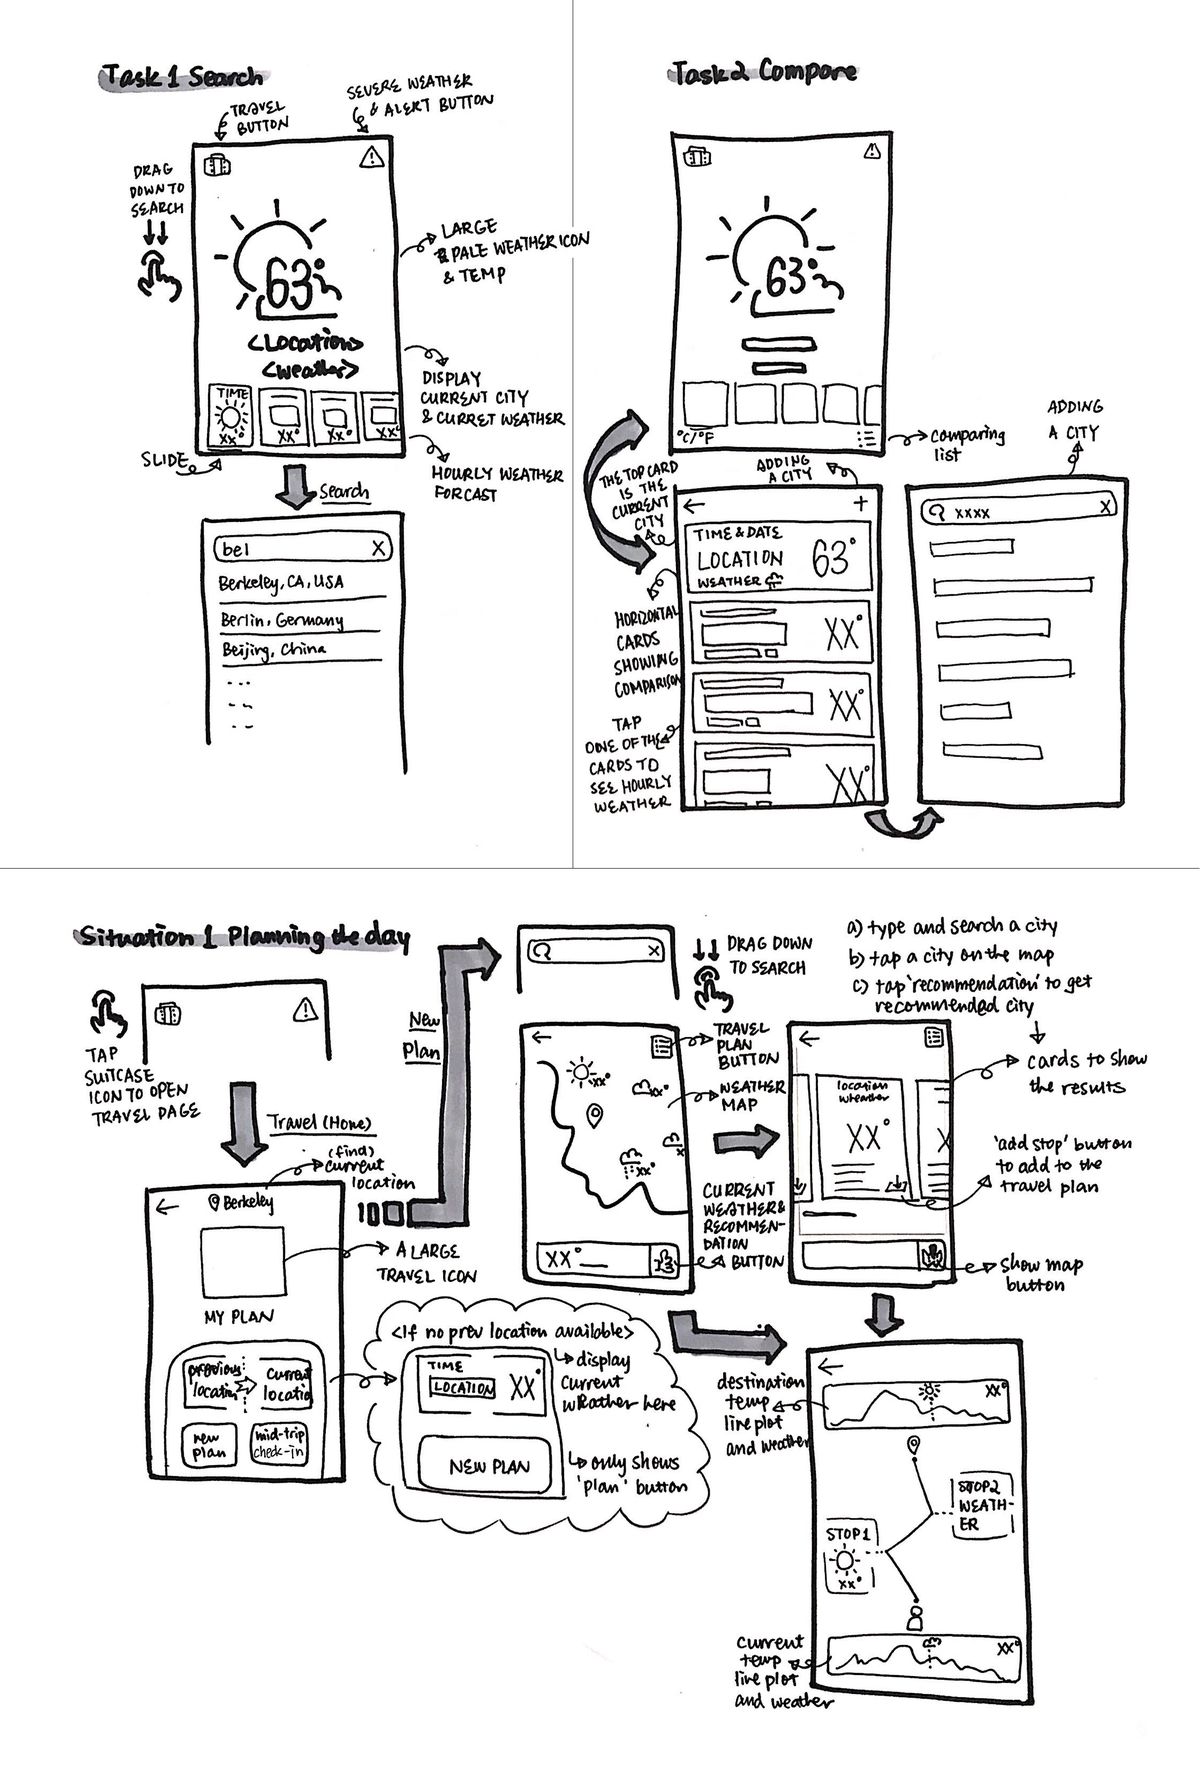 Task 1 Search
TRAVEL
BUTTON
SEVERE WEATHER
& ALERT BUTTON
DRAG
DOWN TO
SEARCH
LARGE
PALE WEATHER ICON
& TEMP
63°
<Location>
<weather>
DISPLAY
CURRENT CITY
& CURRET WEATHER
TIME
XX°
XX°
XX°
XX°
SLIDE
HOURLY WEATHER
FORCAST
Search
bel X
Berkeley, CA, USA
Berlin, Germany
Beijing, China
Task 2 Compare
63°
°C/°F
comparing
list
ADDING
A CITY
ADDING
A CITY
THE TOP CARD
IS THE
CURRENT
CITY
TIME & DATE
LOCATION 63°
WEATHER
XX°
XX°
XX°
HORIZONTAL
CARDS
SHOWING
COMPARISON
TAP
ONE OF THE
CARDS TO
SEE HOURLY
WEATHER
xxxx X
Situation 1 Planning the day
TAP
SUITCASE
ICON TO OPEN
TRAVEL PAGE
Travel (Home)
(find)
current
location
Berkeley
A LARGE
TRAVEL ICON
MY PLAN
previous
location
current
locatio
new
plan
mid-trip
check-in
New
Plan
<If no prev location available>
TIME
LOCATION XX°
NEW PLAN
display
current
weather here
only shows
'plan' button
X
DRAG DOWN
TO SEARCH
TRAVEL
PLAN
BUTTON
WEATHER
MAP
xx°
xx°
x
xx°
XX°
CURRENT
WEATHER &
RECOMMEN-
DATION
BUTTON
a) type and search a city
b) tap a city on the map
c) tap 'recommendation' to get
recommended city
cards to show
the results
location
wheather
XX°
X
'add stop' button
to add to the
travel plan
show map
button
destination
temp
line plot
and weather
XX°
STOP2
WEATH-
ER
STOP1
XX°
XX°
current
temp
line plot
and weather